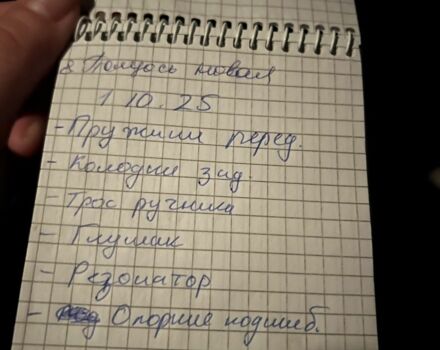 Полуось новая
1 10.25
- Пружини перед.
- Колодки зад.
- Трос ручника
- Глушак
- Резонатор
- Опорние подшиб.